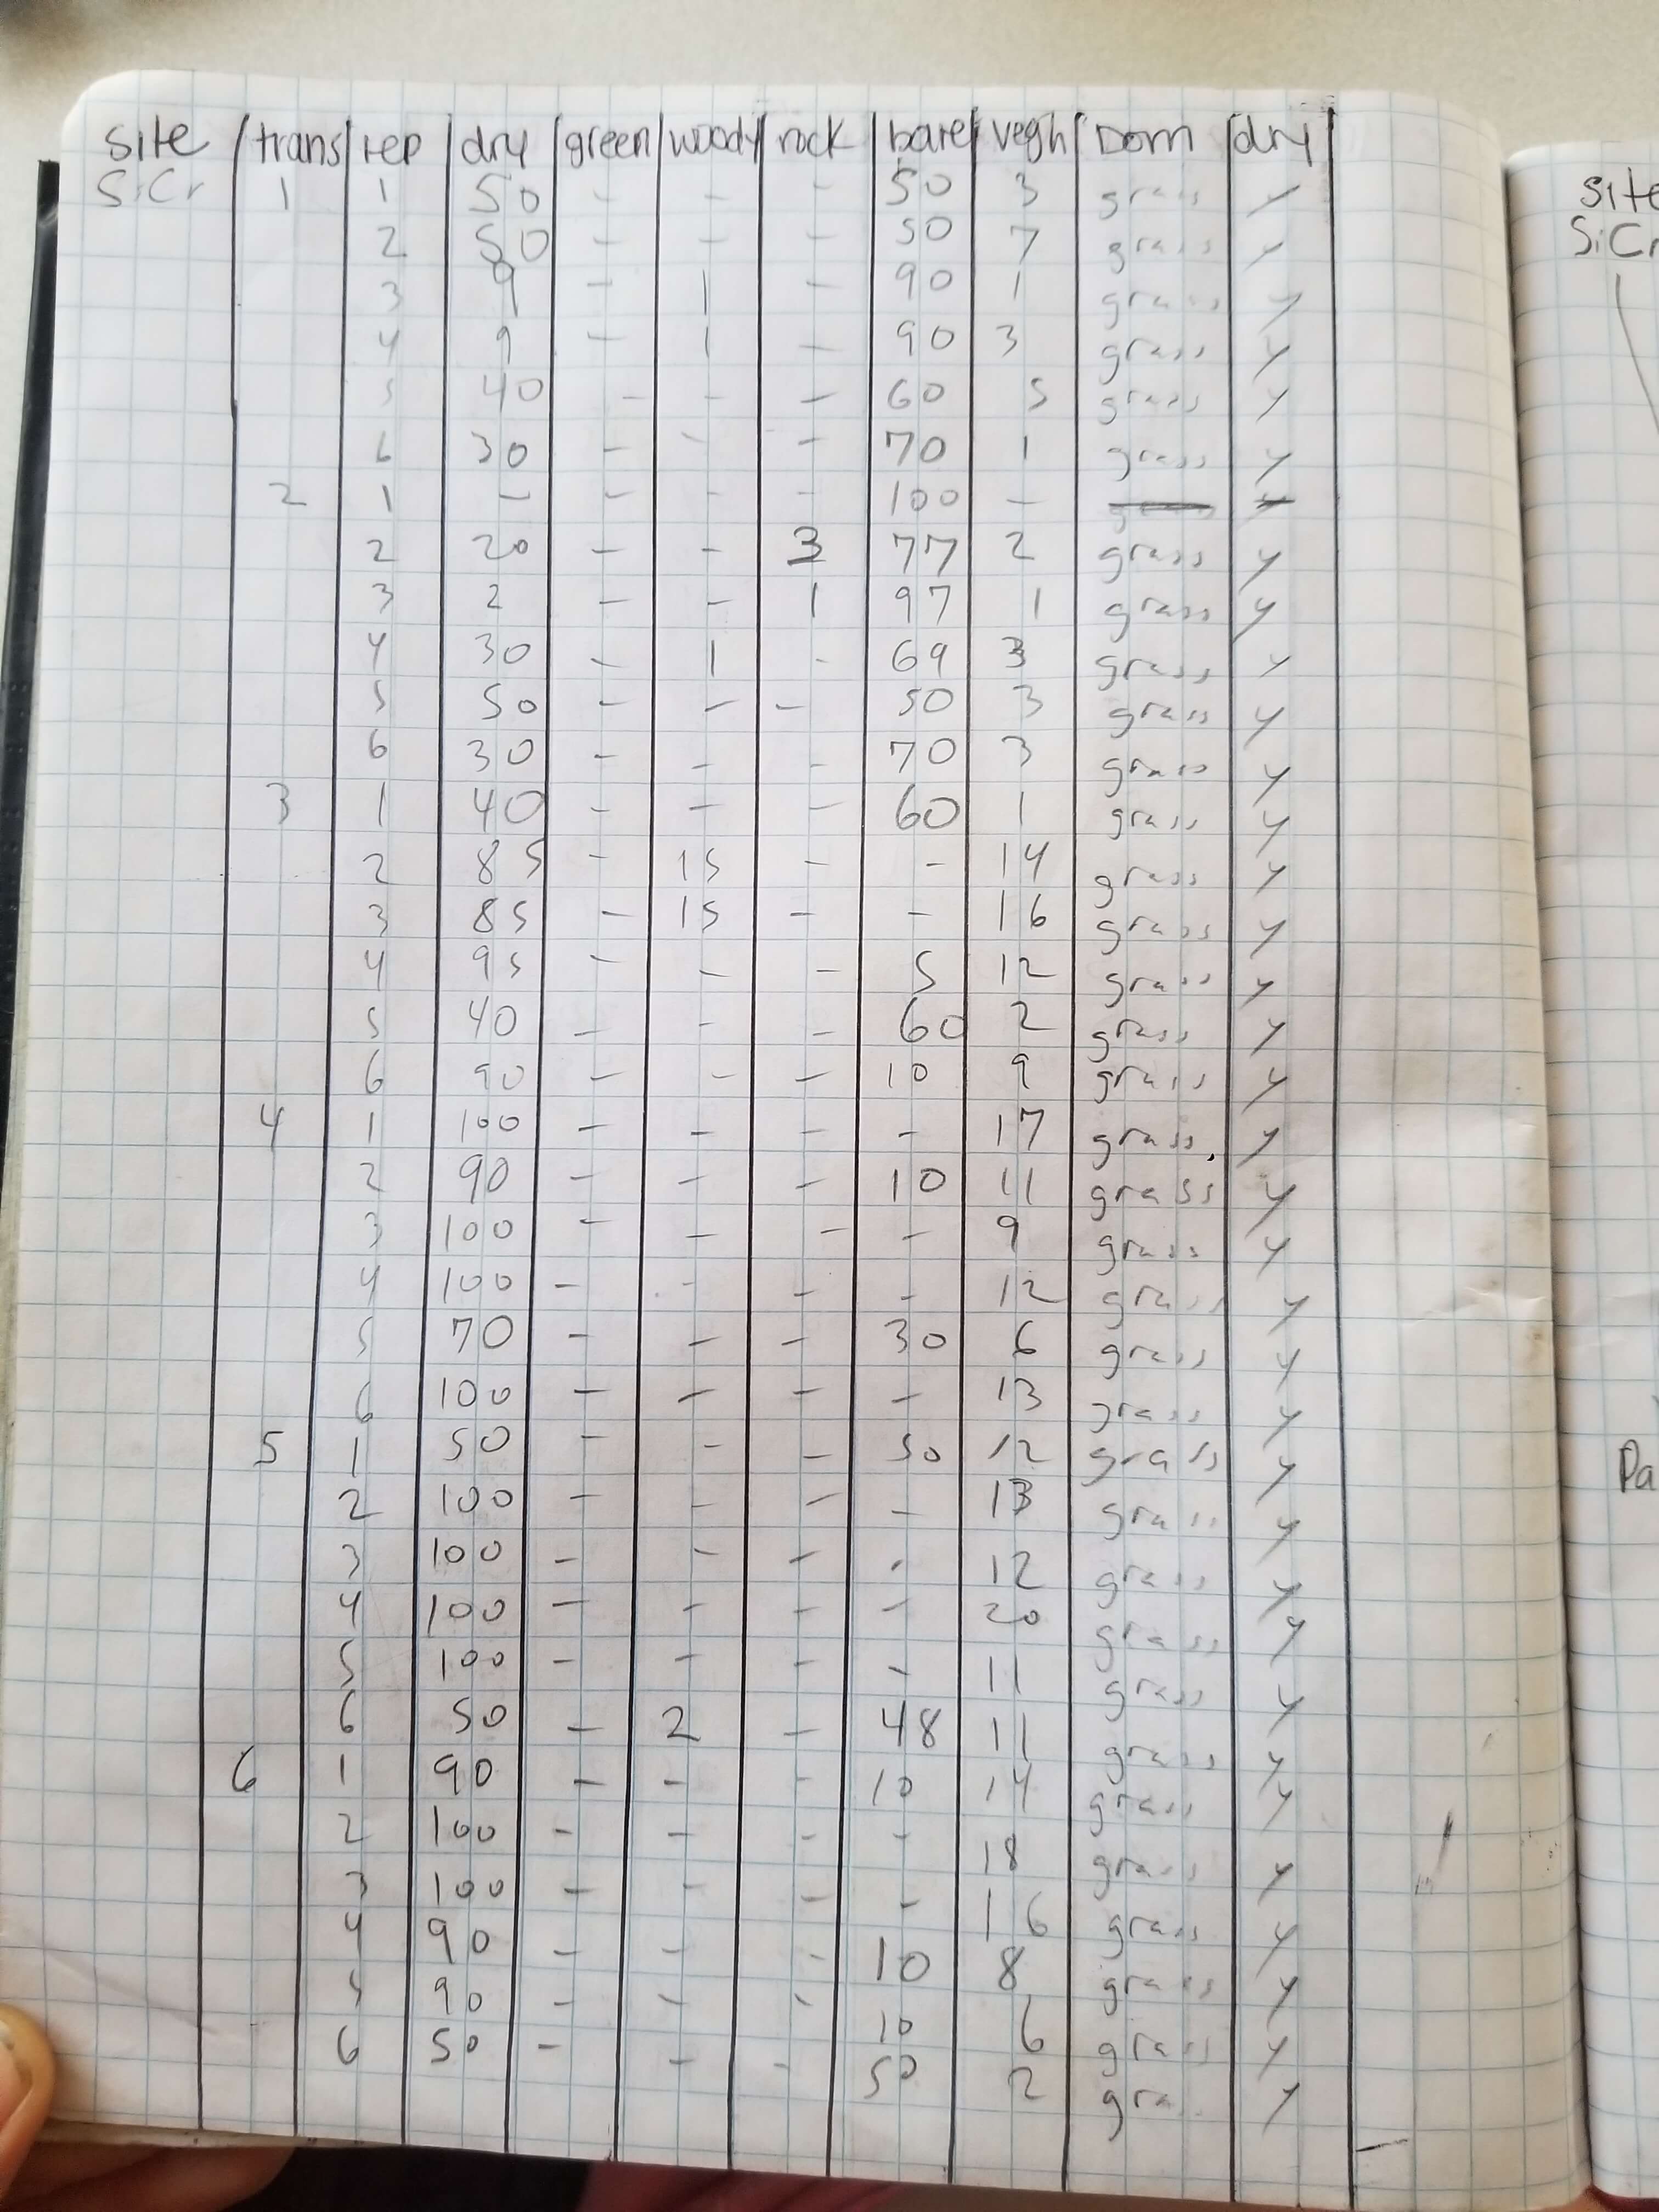 site trans rep dry green woody rock bare vegh Dom dry
SiCr 1 1 50 - - - 50 3 grass y
2 50 - - - 50 7 grass y
3 9 - 1 - 90 1 grass y
4 9 - 1 - 90 3 grass y
5 40 - - - 60 5 grass y
6 30 - - - 70 1 grass y
2 1 - - - - 100 -
2 20 - - 3 77 2 grass y
3 2 - - 1 97 1 grass y
4 30 - 1 - 69 3 grass y
5 50 - - - 50 3 grass y
6 30 - - - 70 3 grass y
3 1 40 - - - 60 1 grass y
2 85 - 15 - - 14 grass y
3 85 - 15 - - 16 grass y
4 95 - - - 5 12 grass y
5 40 - - - 60 2 grass y
6 90 - - - 10 9 grass y
4 1 100 - - - - 17 grass y
2 90 - - - 10 11 grass y
3 100 - - - - 9 grass y
4 100 - - - - 12 grass y
5 70 - - - 30 6 grass y
6 100 - - - - 13 grass y
5 1 50 - - - 50 12 grass y
2 100 - - - - 13 grass y
3 100 - - - - 12 grass y
4 100 - - - - 20 grass y
5 100 - - - - 11 grass y
6 50 - 2 - 48 11 grass y
6 1 90 - - - 10 14 grass y
2 100 - - - - 18 grass y
3 100 - - - - 16 grass y
4 90 - - - 10 8 grass y
5 90 - - - 10 6 grass y
6 50 - - - 50 2 gra y
site
SiCr
Pa